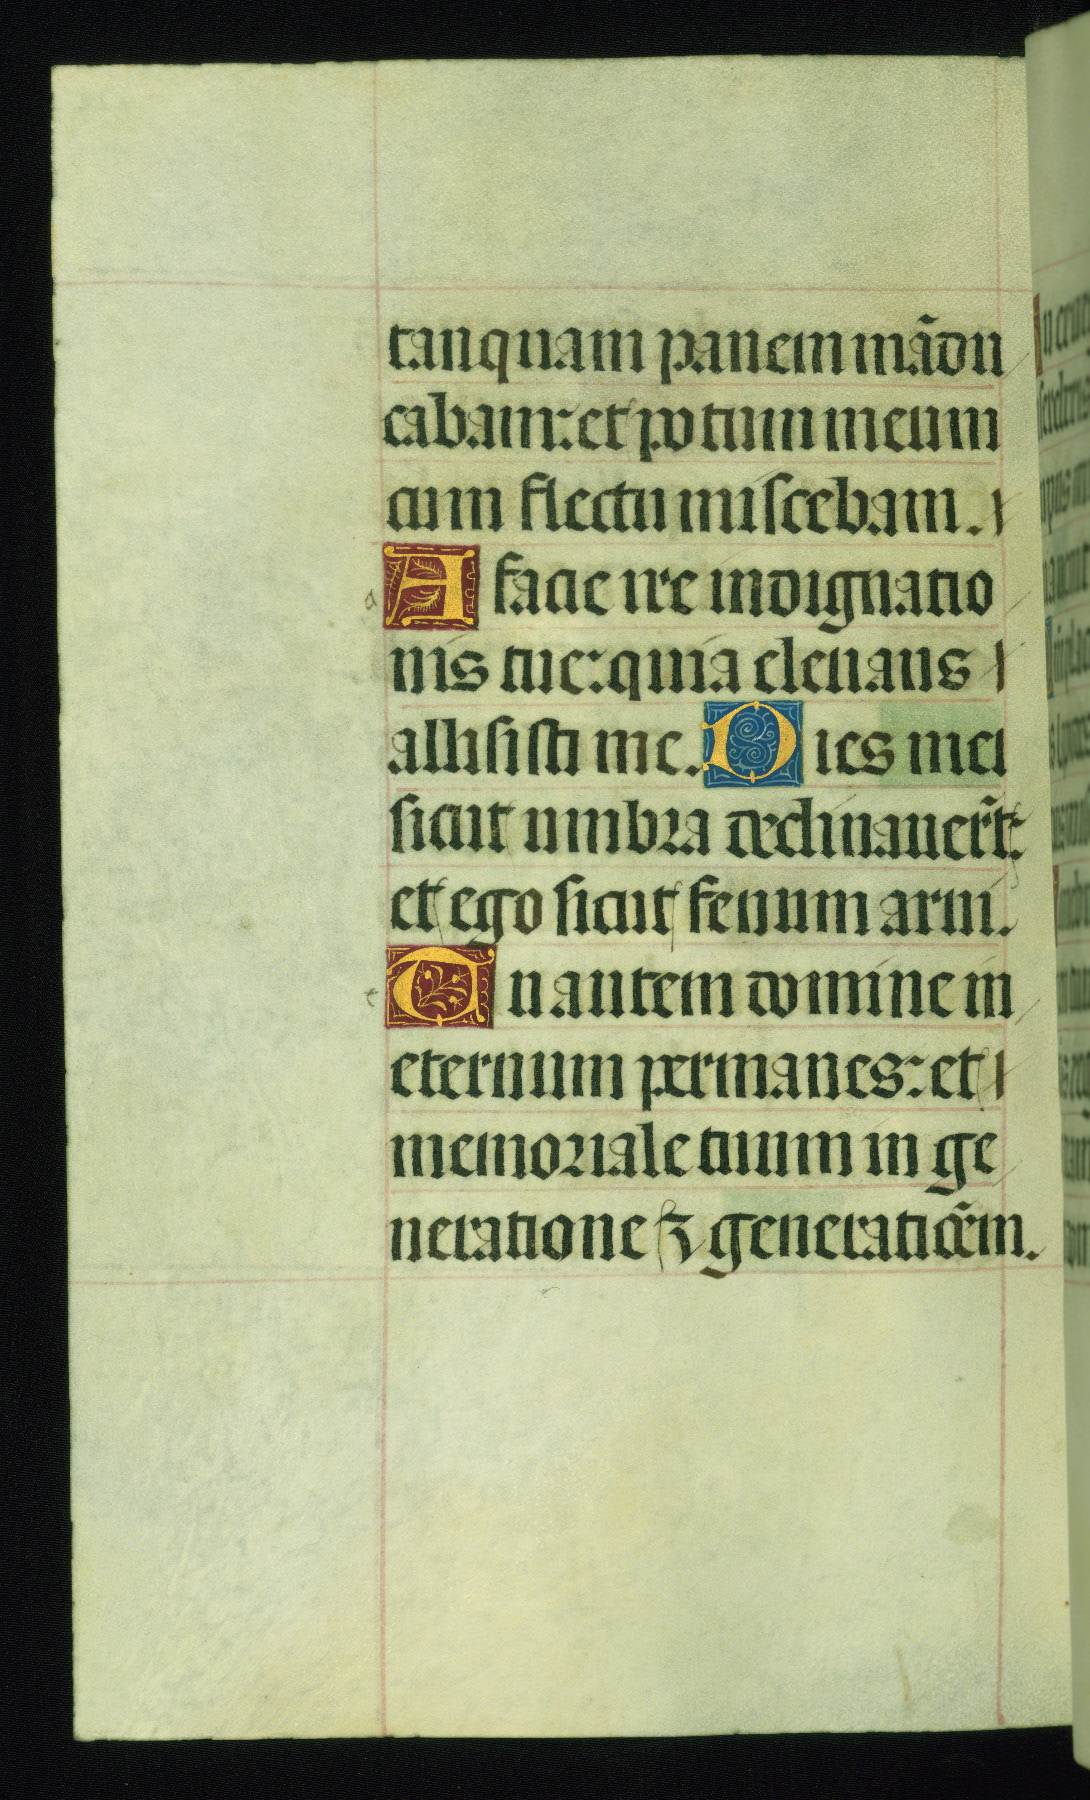 tanquam panem mãdu
cabam: et potum meum
cum fletu miscebam.
A facie ire indignatio
nis tue: quia elevans
allisisti me. Dies mei
sicut umbra declinauer̃t:
et ego sicut fenum arui.
Tu autem domine in
eternum permanes: et
memoriale tuum in ge
neratione ⁊ generatiõem.